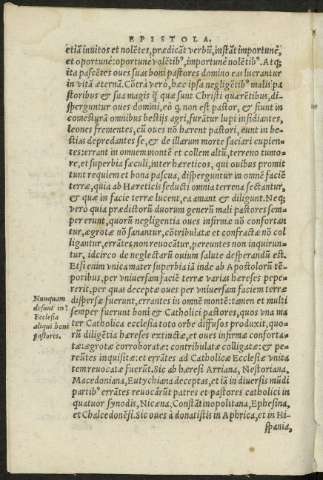 EPISTOLA.
etiã inuitos et nolẽtes, prædicãt verbũ, instãt importunè,
et oportunè: oportunè volẽtibꝰ, importunè nolẽtibꝰ. Atq;
ita pascẽtes oues suas boni pastores domino eas lucrantur
in vitã æternã. Cõtra verò, hæc ipsa negligẽtibꝰ malis pa
storibus & sua magis q̃ quæ sunt Christi quærẽtibus, di=
sperguntur oues domini, eò q, non est pastor, & fiunt in
comesturã omnibus bestijs agri, furãtur lupi insidiantes,
leones frementes, cũ oues nõ hærent pastori, eunt in be=
stias depredantes se, & de illarum morte saciari cupien=
tes: errant in omni monte et in collem altũ, terreno tumo=
re, et superbia sæculi, inter hæreticos, qui ouibus promit
tunt requiem et bona pascua, disperguntur in omnẽ faciẽ
terræ, quia ab Hæreticis seducti omnia terrena sectantur,
& quæ in facie terræ lucent, ea amant & diligunt. Neq;
verò quia prædictorũ duorum generũ mali pastores sem=
per erunt, quorũ negligentia oues infirmæ nõ confortan
tur, ægrotæ nõ sanantur, cõtribulatæ et confractæ nõ col
ligantur, errãtes, non reuocãtur, pereuntes non inquirun=
tur, idcirco de neglectarũ ouium salute desperandũ est.
Etsi enim vnica mater superbia iã inde ab Apostolorũ tẽ=
poribus, per vniuersam faciẽ terræ varias hæreses pepe=
rerit, per quas deceptæ oues per vniuersam faciem terræ
dispersæ fuerunt, errantes in omni monte: tamen et multi
semper fuerunt boni & Catholici pastores, quos vna ma
ter Catholica ecclesia toto orbe diffusos produxit, quo=
rũ diligẽtia hæreses extinctæ, et oues infirmæ confortæ
tatæ: ægrotæ corroboratæ: contribulatæ colligatæ: & pe=
reũtes inquisitæ: et errãtes ad Catholicæ Ecclesiæ vnita
tem reuocatæ fuerũt. Sic ab hæresi Arriana, Nestoriana,
Macedoniana, Eutychiana deceptas, et iã in diuersis mũdi
partibꝰ errantes reuocârũt patres et pastores catholici in
quatuor synodis, Nicæna, Constãtinopolitana, Ephesina,
et Chalcedonẽsi. Sic oues à donatistis in Aphrica, et in Hi=
spania,
Nunquam
desunt in
Ecclesia
aliqui boni
pastores.